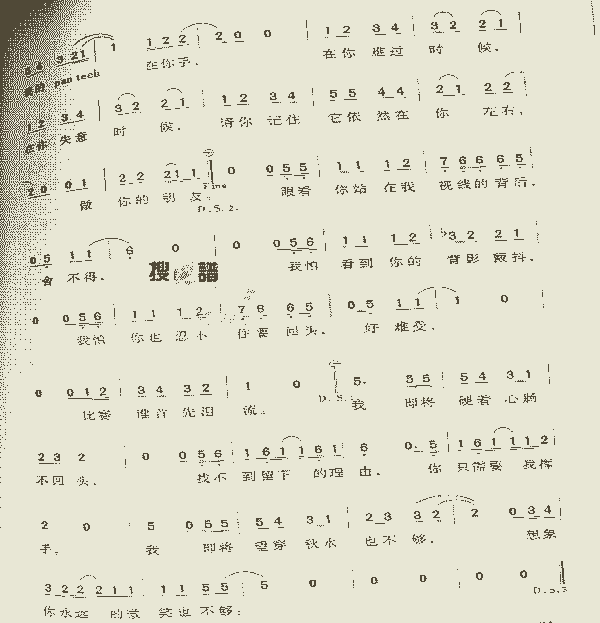 3 21 | 1 1 2 2 | 2 0 0 | 1 2 3 4 | 3 2 2 1 |
pan tech 在你手. 在你难过 时 候.
1 2 3 4 | 3 2 2 1 | 1 2 3 4 | 5 5 4 4 | 2 1 2 2 |
在你 失意 时 候. 请你 记住 它依 然在 你 左右,
2 0 0 1 | 2 2 2 1 1 | 0 0 5 5 | 1 1 1 2 | 7 6 6 6 5 |
Fine
做 你的 朋友. 眼看 你站 在我 视线的 背后.
D.S.2.
0 5 1 1 | 6 0 | 0 0 5 6 | 1 1 1 2 | 3 2 2 1 |
舍 不得. 搜 譜 我怕 看到 你的 背影 颤抖.
0 0 5 6 | 1 1 1 2 | 7 6 6 5 | 0 5 1 1 | 1 0 |
我怕 你也 忍不 住要 回头. 好 难受.
0 0 1 2 | 3 4 3 2 | 1 0 | 5. 5 5 | 5 4 3 1 |
比赛 谁首 先泪 流. D.S. 我 即将 硬着 心肠
2 3 2 | 0 0 5 6 | 1 6 1 1 6 1 | 6 0. 5 | 1 6 1 1 1 2 |
不回 头. 找不 到留下 的理 由. 你 只需要 我挥
2 0 | 5 0 5 5 | 5 4 3 1 | 2 3 3 2 | 2 0 3 4 |
手. 我 即将 望穿 秋水 也不 够. 想象
3 2 2 2 1 1 | 1 1 5 5 | 5 0 | 0 0 | 0 0 |
你永远 的微 笑也 不够: D.S.3